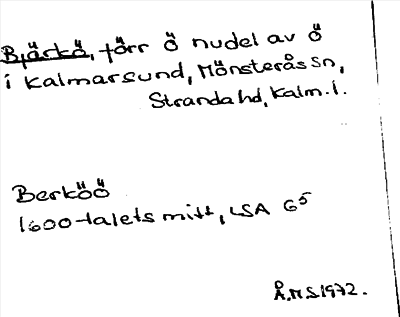 Bjärkö, förr ö nu del av ö
i Kalmarsund, Mönsterås Sn,
Stranda hd, Kalm. l.
Berköö
1600-talets mitt, LSA G5
Å.M.S. 1972.